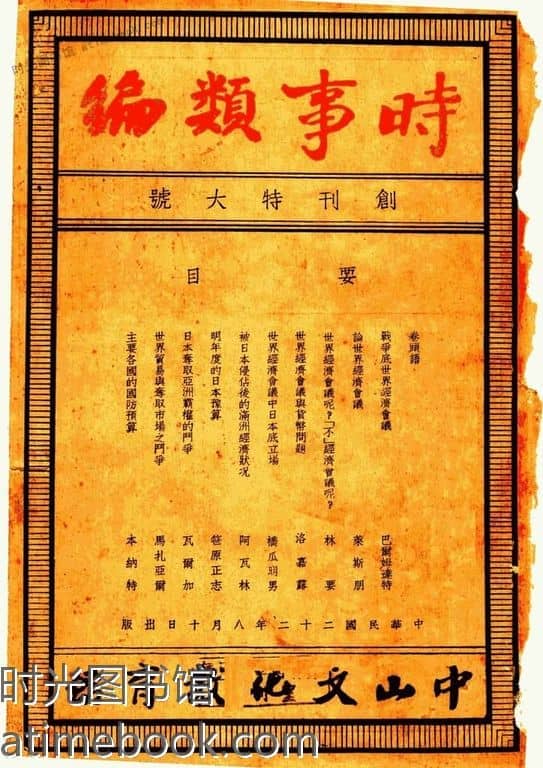 時事類編
創刊特大號
要目
卷頭語
戰爭底世界經濟會議 巴爾姆達特
論世界經濟會議 萊斯朋
世界經濟會議呢？「不」經濟會議呢？ 林要
世界經濟會議與貨幣問題 洛嘉羅
世界經濟會議中日本底立場 橋瓜明男
被日本侵佔後的滿洲經濟狀况 阿瓦林
明年度的日本豫算 笹原正志
日本奪取亞洲霸權的鬥爭 瓦爾加
世界貿易與奪取市場之鬥爭 馬扎亞爾
主要各國的國防預算 本納特
中華民國二十二年八月十日出版
中山文化教育館
时光图书馆
atimebook.com